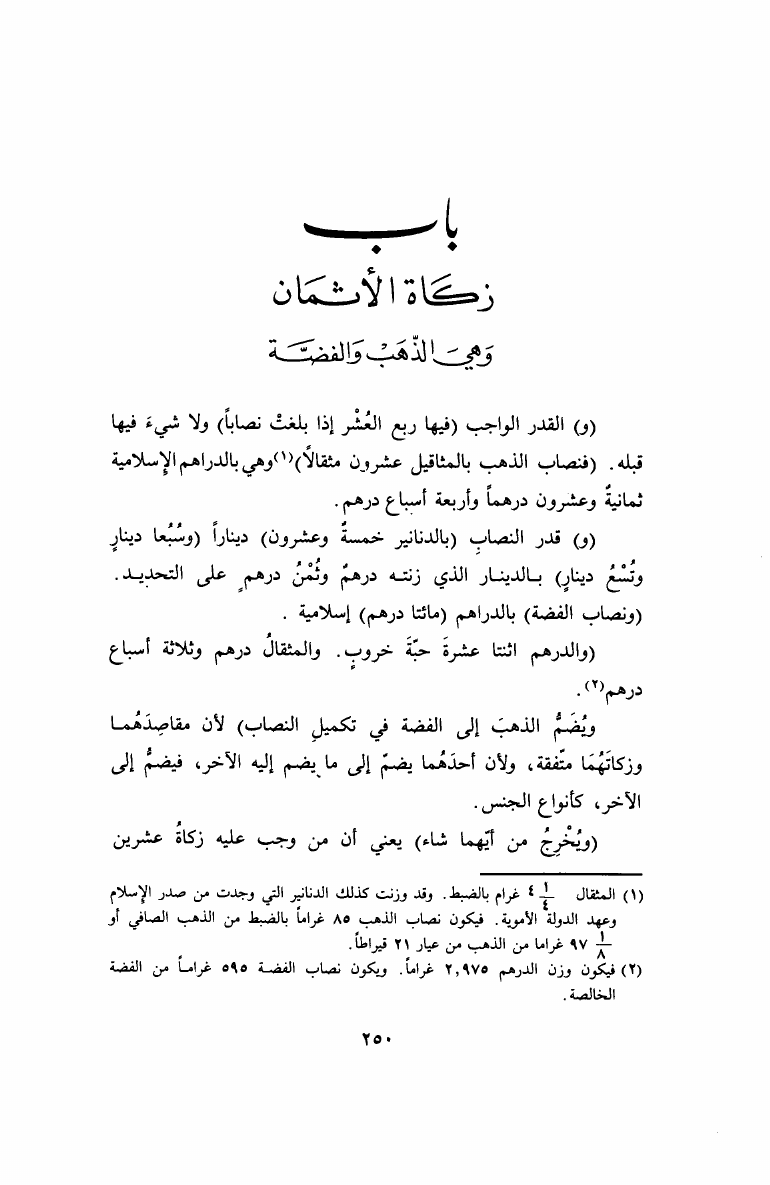 باب
زكاة الأثمان
وَهيَ الذّهَبْ وَالفضَّة
(و) القدر الواجب (فيها ربع العُشْر إذا بلغتْ نصاباً) ولا شيءَ فيها
قبله. (فنصاب الذهب بالمثاقيل عشرون مثقالاً)(١) وهي بالدراهم الإسلامية
ثمانيةٌ وعشرون درهماً وأربعة أسباع درهم.
(و) قدر النصابِ (بالدنانير خمسةٌ وعشرون) ديناراً (وسُبُعا دينارٍ
وتُسْعُ دينارٍ) بالدينار الذي زنته درهمٌ وثُمْنُ درهمٍ على التحديد.
(ونصاب الفضة) بالدراهم (مائتا درهم) إسلامية .
(والدرهم اثنتا عشرةَ حبّةَ خروبٍ. والمثقالُ درهم وثلاثة أسباع
درهم(٢).
ويُضَمُّ الذهبَ إلى الفضة في تكميلِ النصاب) لأن مقاصدَهُما
وزكاتَهُمَا متّفقة، ولأن أحدَهُما يضمّ إلى ما يضم إليه الآخر، فيضمُّ إلى
الآخر، كأنواع الجنس.
(ويُخْرِجُ من أيّهما شاء) يعني أن من وجب عليه زكاةُ عشرين
(١) المثقال ٤ ١/٤ غرام بالضبط. وقد وزنت كذلك الدنانير التي وجدت من صدر الإسلام
وعهد الدولة الأموية. فيكون نصاب الذهب ٨٥ غراماً بالضبط من الذهب الصافي أو
٩٧ ١/٨ غراما من الذهب من عيار ٢١ قيراطاً.
(٢) فيكون وزن الدرهم ٢,٩٧٥ غراماً. ويكون نصاب الفضة ٥٩٥ غراماً من الفضة
الخالصة.
٢٥٠